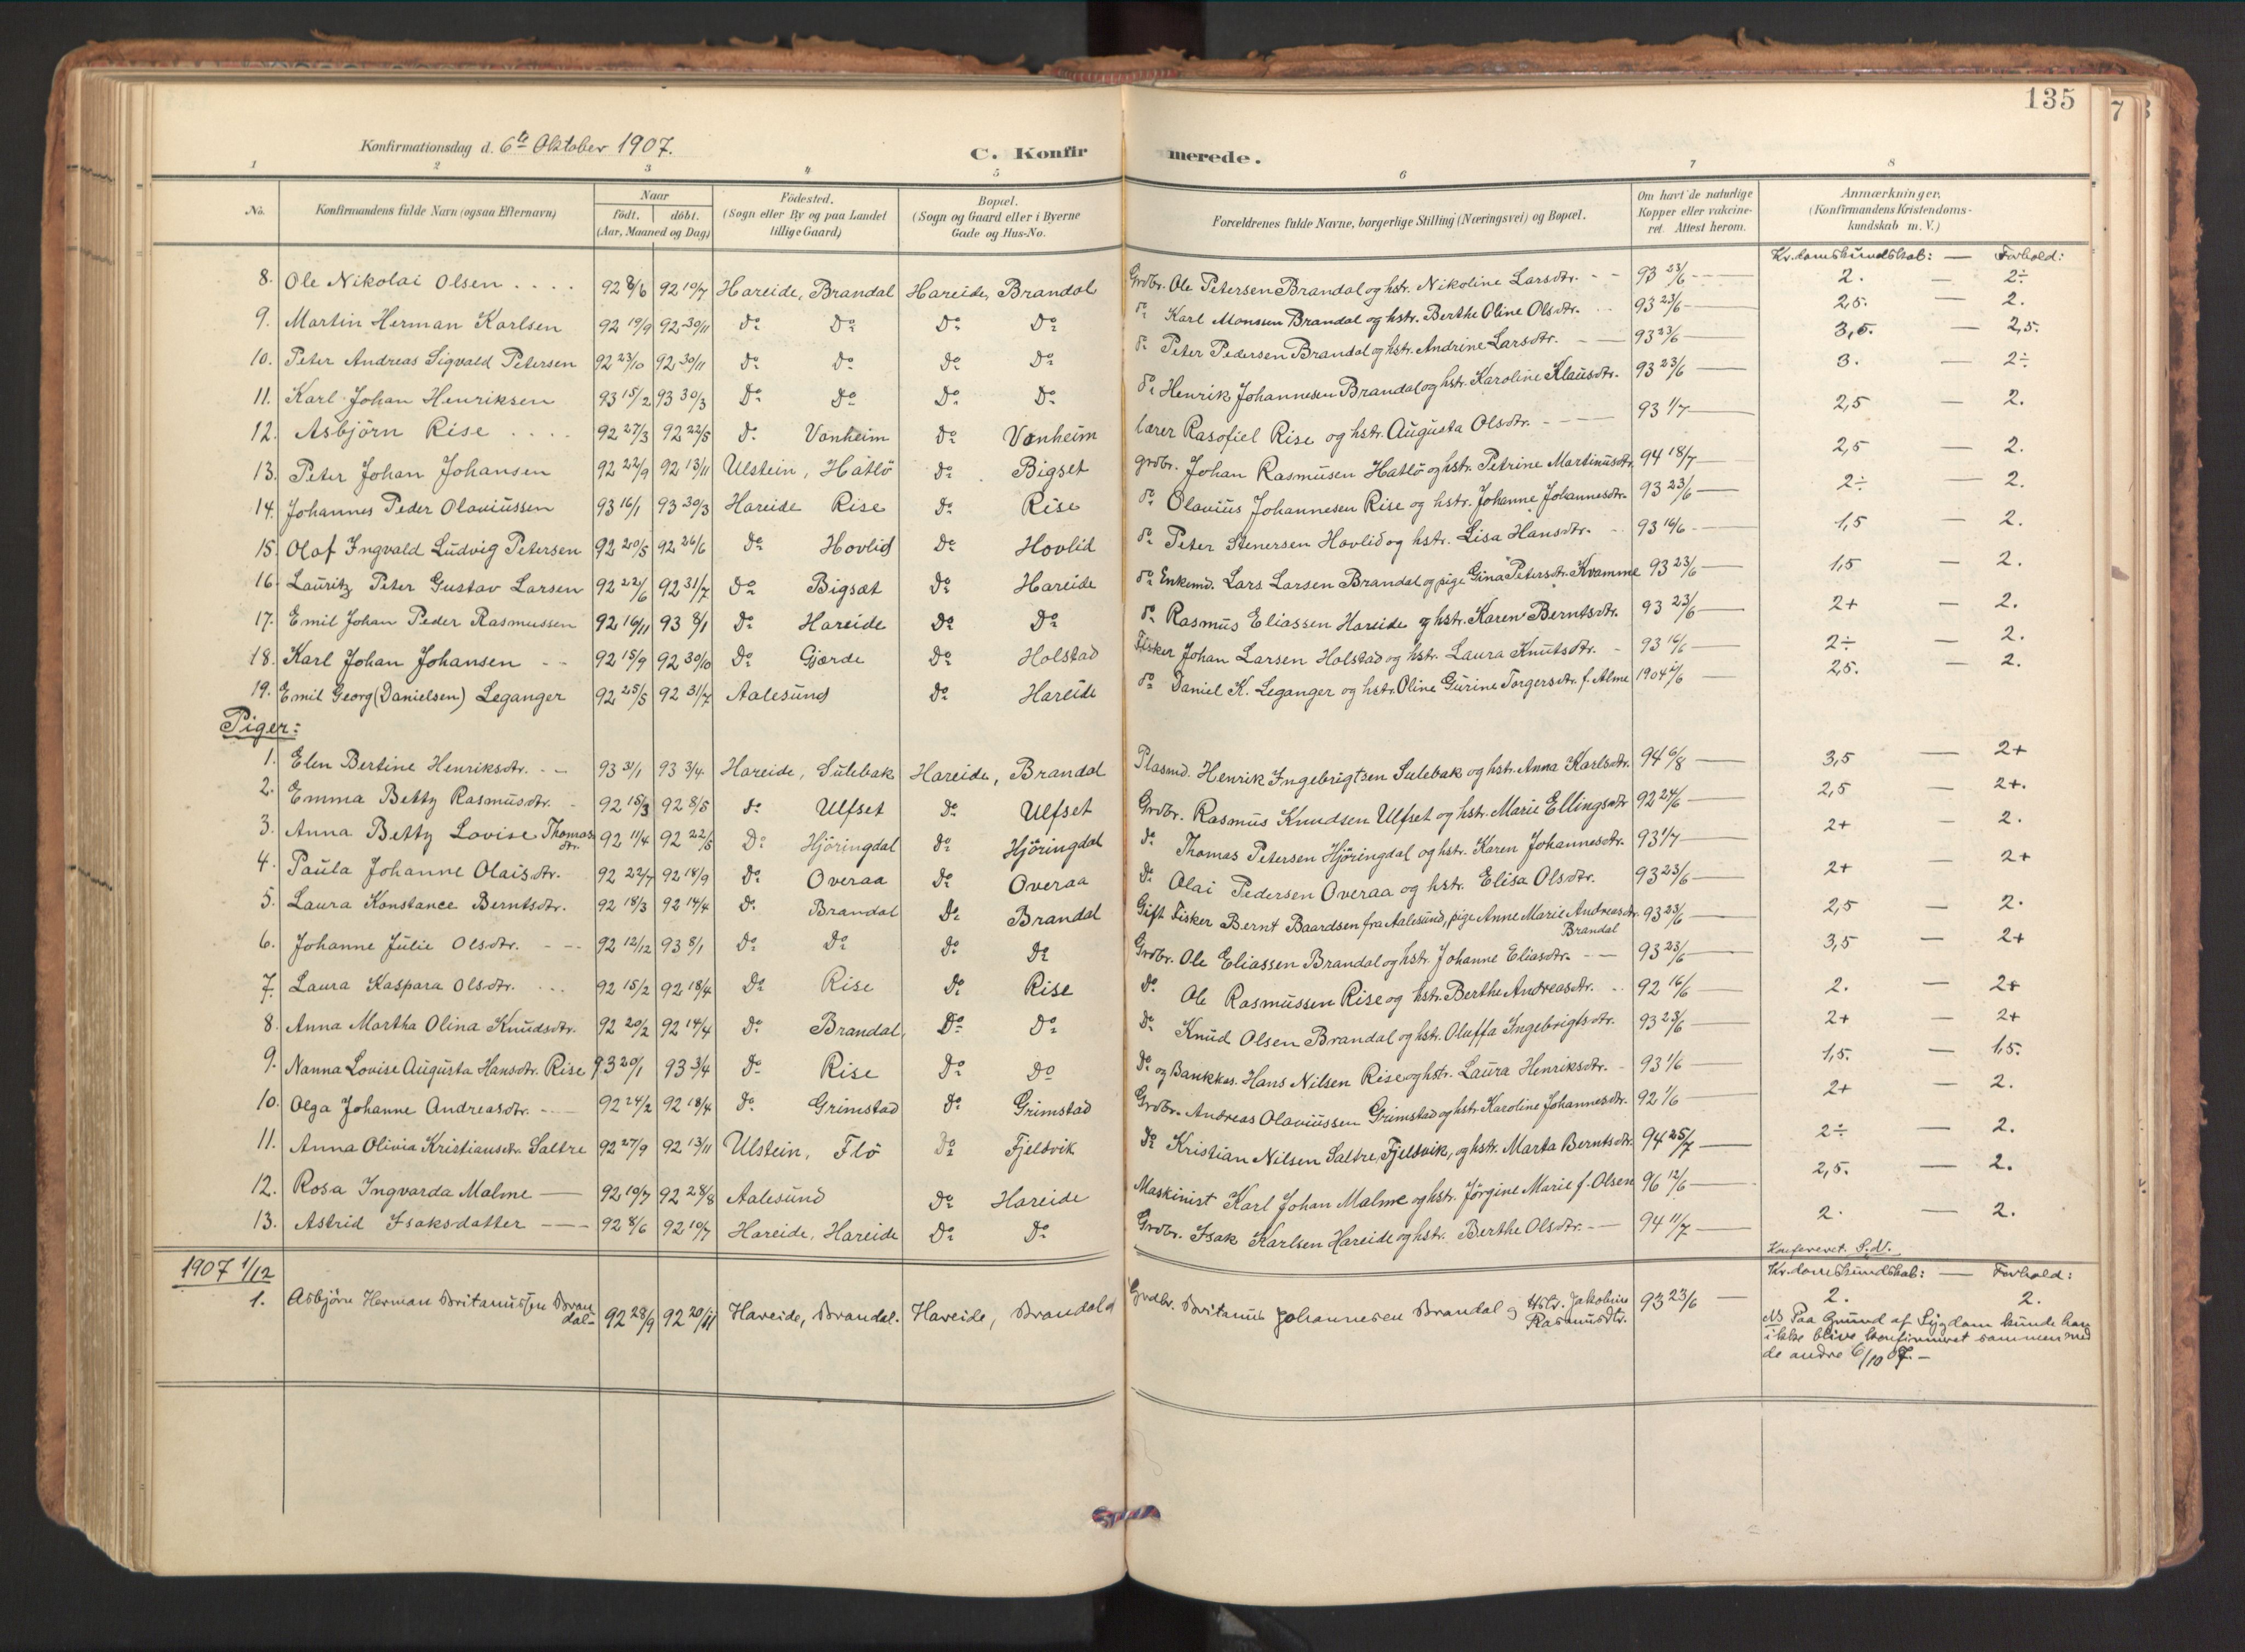 135
7
Konfirmationsdag d. 6te Oktober 1907.
C. Konfirmerede.
1 2 3 4 5 6 7 8
No. Konfirmandens fulde Navn (ogsaa Efternavn) Naar födt. döbt. (Aar, Maaned og Dag) Födested. (Sogn eller By og paa Landet tillige Gaard) Bopæl. (Sogn og Gaard eller i Byerne Gade og Hus-No. Forældrenes fulde Navne, borgerlige Stilling (Næringsvei) og Bopæl. Om havt de naturlige Kopper eller vakcineret. Attest herom. Anmærkninger, (Konfirmandens Kristendomskundskab m. V.)
Kr.domskundskab: — Forhold:
8. Ole Nikolai Olsen .... 92 8/6 92 10/7 Hareide, Brandal Hareide, Brandal Grdbr. Ole Petersen Brandal og hstr. Nikoline Larsdtr. - - 93 23/6 - - 2. — 2÷
9. Martin Herman Karlsen 92 19/9 92 30/11 do do do do do Karl Monssen Brandal og hstr. Berthe Oline Olsdtr. - 93 23/6 — 2,5. — 2.
10. Peter Andreas Sigvald Petersen 92 23/10 92 30/11 do do do do do Peter Pedersen Brandal og hstr. Andrine Larsdtr. - — 93 23/6 — 3,5. — 2,5.
11. Karl Johan Henriksen 93 15/2 93 30/3 do do do do do Henrik Johannesen Brandal og hstr. Karoline Klausdtr. 93 23/6 — 3. — 2÷
12. Asbjörn Rise .... 92 27/3 92 22/5 do Vanheim do Vanheim lærer Rasofiel Rise og hstr. Augusta Olsdtr. - - — 93 1/7 — 2,5 — 2.
13. Peter Johan Johansen 92 22/9 92 13/11 Ulstein, Hatlö do Bigset grdbr. Johan Rasmusen Hatlö og hstr. Petrine Martinusdtr. 94 18/7 — 2,5 — 2.
14. Johannes Peder Olaviussen 93 16/1 93 30/3 Hareide Rise do Rise do Olavius Johannesen Rise og hstr. Johanne Johannesdtr. 93 23/6 — 2÷ — 2.
15. Olaf Ingvald Ludvig Petersen 92 20/5 92 26/6 do Hovlid do Hovlid do Peter Stenersen Hovlid og hstr. Lisa Hansdtr. - 93 16/6 - — 1,5 — 2.
16. Lauritz Peter Gustav Larsen 92 22/6 92 31/7 do Bigsæt do Hareide do Enkemd. Lars Larsen Brandal og pige Gina Petersdtr. Kvamme 93 23/6 — 1,5 — 2.
17. Emil Johan Peder Rasmussen 92 16/11 93 8/1 do Hareide do do do Rasmus Eliassen Hareide og hstr. Karen Berntsdtr. 93 23/6 — 2+ — 2.
18. Karl Johan Johansen - - 92 15/9 92 30/10 do Gjærde do Holstad Fisker Johan Larsen Holstad og hstr. Laura Knutsdtr. - 93 16/6 — 2÷ — 2.
19. Emil Georg (Danielsen) Leganger 92 25/5 92 31/7 Aalesund do Hareide do Daniel K. Leganger og hstr. Oline Gurine Torgersdtr. f. Alme 1904 — 2,5. — 2.
Piger:
1. Elen Bertine Henriksdtr. - - 93 31/1 93 3/4 Hareide, Sulebak Hareide, Brandal Plasmd. Henrik Ingebrigtsen Sulebak og hstr. Anna Karlsdtr. 94 6/8 — 3,5 — 2+
2. Emma Betty Rasmusdtr. - 92 15/3 92 8/5 do Ulfset do Ulfset Grdbr. Rasmus Knudsen Ulfset og hstr. Marie Ellingsdtr 92 24/6 — 2,5 — 2+.
3. Anna Betty Lovise Thomasdtr. 92 11/4 92 22/5 do Hjöringdal do Hjöringdal do Thomas Petersen Hjöringdal og hstr. Karen Johannesdtr. 93 1/7 — 2+ — 2.
4. Paula Johanne Olaisdtr. 92 22/7 92 18/9 do Overaa do Overaa do Olai Pedersen Overaa og hstr. Elisa Olsdtr. 93 23/6 — 2+ — 2+
5. Laura Konstance Berntsdtr. 92 18/3 92 14/4 do Brandal do Brandal Gift Fisker Bernt Baardsen fra Aalesund, pige Anne Marie Andreasdtr. Brandal 93 23/6 — 2,5 — 2.
6. Johanne Julie Olsdtr. - - - 92 12/12 93 8/1 do do do do Grdbr. Ole Eliassen Brandal og hstr. Johanne Eliasdtr. - — 93 23/6 — 3,5 — 2+
7. Laura Kaspara Olsdtr. ... 92 15/2 92 18/4 do Rise do Rise do Ole Rasmussen Rise og hstr. Berthe Andreasdtr. .. 92 16/6 — 2. — 2+
8. Anna Martha Olina Knudsdtr. 92 20/2 92 14/4 do Brandal, do do do Knud Olsen Brandal og hstr. Oluffa Ingebrigtsdtr. 93 23/6 — 2+ — 2+
9. Nanna Lovise Augusta Hansdtr. Rise 93 20/1 93 3/4 do Rise do do do og Bankkas. Hans Nilsen Rise og hstr. Laura Henriksdtr. - 93 1/6 — 1,5. — 1,5.
10. Olga Johanne Andreasdtr. - — 92 24/2 92 18/4 do Grimstad do Grimstad Grdbr. Andreas Olaviussen Grimstad og hstr Karoline Johannesdtr. 92 1/6 — 2+ — 2.
11. Anna Olivia Kristiansdtr Saltre 92 27/9 92 13/11 Ulstein, Flö do Fjeldvik do Kristian Nilsen Saltre, Fjeldvik, og hstr. Marta Berntsdtr. 94 25/7 — 2÷ — 2.
12. Rosa Ingvarda Malme — 92 19/7 92 28/8 Aalesund do Hareide Maskinist Karl Johan Malme og hstr. Jørgine Marie f. Olsen 96 12/6 — 2,5. — 2.
13. Astrid Isaksdatter - — - 92 8/6 92 10/7 Hareide, Hareide do do Grdbr. Isak Karlsen Hareide og hstr. Berthe Olsdtr. - — 94 11/7 — 2. — 2.
Konfereret. S.N.
1907 1/12
Kr.domskundskab: — Forhold:
1. Asbjörn Herman Britanussen Brandal- 92 28/9 92 20/11 Hareide, Brandal. Hareide, Brandal Grdbr. Britanus Johannesen Brandal og Hstr. Jakobine Rasmusdtr. 93 23/6 — 2. 2.
NB Paa Grund af Sygdom kunde han
ikke blive konfirmeret sammen med
de andre 6/10 07. -